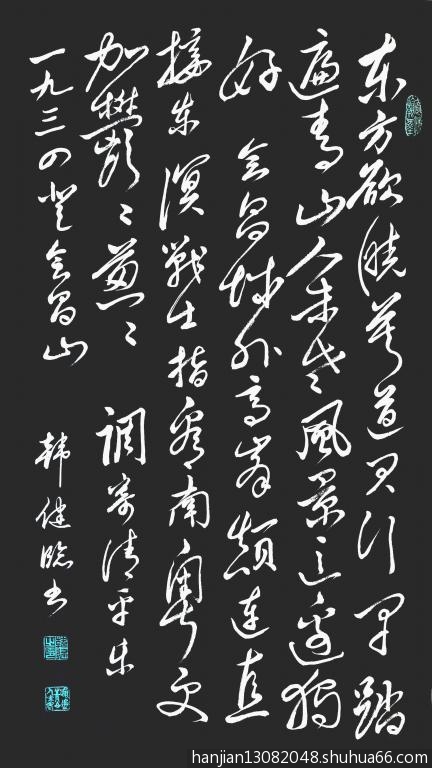 东方欲晓莫道君行早踏
遍青山人未老風景这边独
好 会昌城外高峯颠连直
接东溟戰士指看南粤更
加欝〻葱〻 调寄清平乐
一九三四登会昌山 韩健临书
hanjian13082048.shuhua66.com